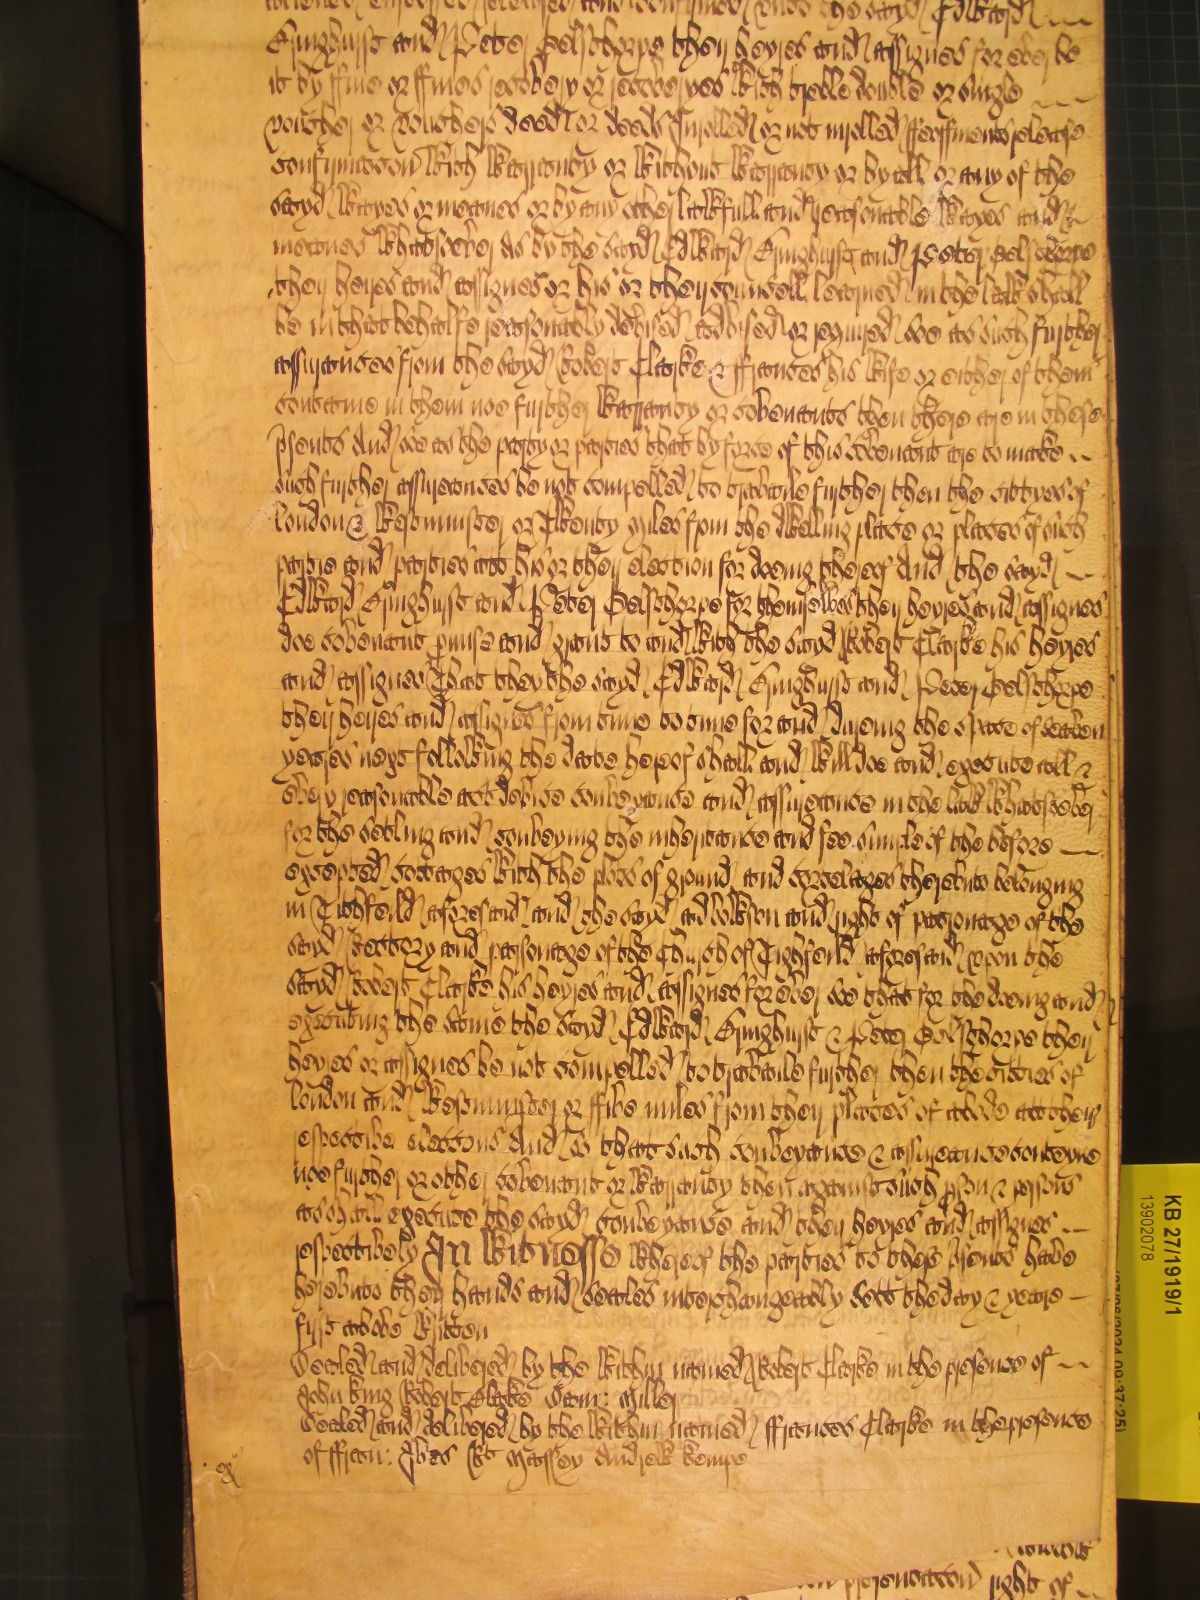 released and confirmed unto the sayd Edward
Gringhurst and Peter Pelsthorpe their heyres and assignes for ever be
it by ffine or ffines recovery or recoveryes with treble double or single
voucher or vouchers deed or deeds Inrolled or not inrolled ffeoffment release
confirmacon with warranty or without warranty or by all or any of the
sayd wayes or meanes or by any other lawfull and reasonable wayes and
meanes whatsoever as by the sayd Edward Gringhurst and Peter Pelsthorpe
their heires and assignes or his or their councell learned in the law shall
be in that behalfe reasonably devised advised or required soe as such further
assurances from the sayd Robert Clarke & ffrances his wife or either of them
containe in them noe further warranty or covenants then there are in these
psents And soe as the party or parties that by force of this covenant are to make
such further assurances be not compelled to travaile further then the cittyes of
London & Westminster or Twenty miles from the dwelling place or places of such
partie and parties att his or their election for doeing thereof And the sayd
Edward Gringhurst and Peter Pelsthorpe for themselves their heyres and assignes
doe covenant pmise and grant to and with the sayd Robert Clarke his heyres
and assignes That they the sayd Edward Gringhurst and Peter Pelsthorpe
their heyres and assignes from time to time for and dureing the space of seaven
yeares next following the date hereof shall and will doe and execute all &
every reasonable act devise conveyance and assureance in the law whatsoever
for the setling and conveying the inheritance and fee simple of the before
excepted cottages with the plots of ground and curtelages thereunto belonging
in Tichfeild aforesaid and the sayd advowson and right of patronage of the
sayd Rectory and parsonage of the Church of Tichfeild aforesaid upon the
sayd Robert Clarke his heyres and assignes for ever soe that for the doeing and
executing the same the sayd Edward Gringhurst & Peter Pelsthorpe their
heyres or assignes be not compelled to travaile further then the citties of
London and Westminster or ffive miles from their places of abode att their
respective elections And so that such conveyance & assureance conteyne
noe further or other covenant or warranty then against such pson & persons
as shall execute the sayd conveyance and their heyres and assignes
respectively In Witnesse whereof the parties to these psents have
hereunto their hands and seales interchangeably sett the day & yeare
first above written
Sealed and delivered by the within named Robert Clarke in the presence of
John King Robert Clarke Sam: Miller
Sealed and delivered by the within named ffrances Clarke in the presence
of ffran: Ives Massey Andrew Kempe
ex
presentation right of
KB 27/1919/1
13902078